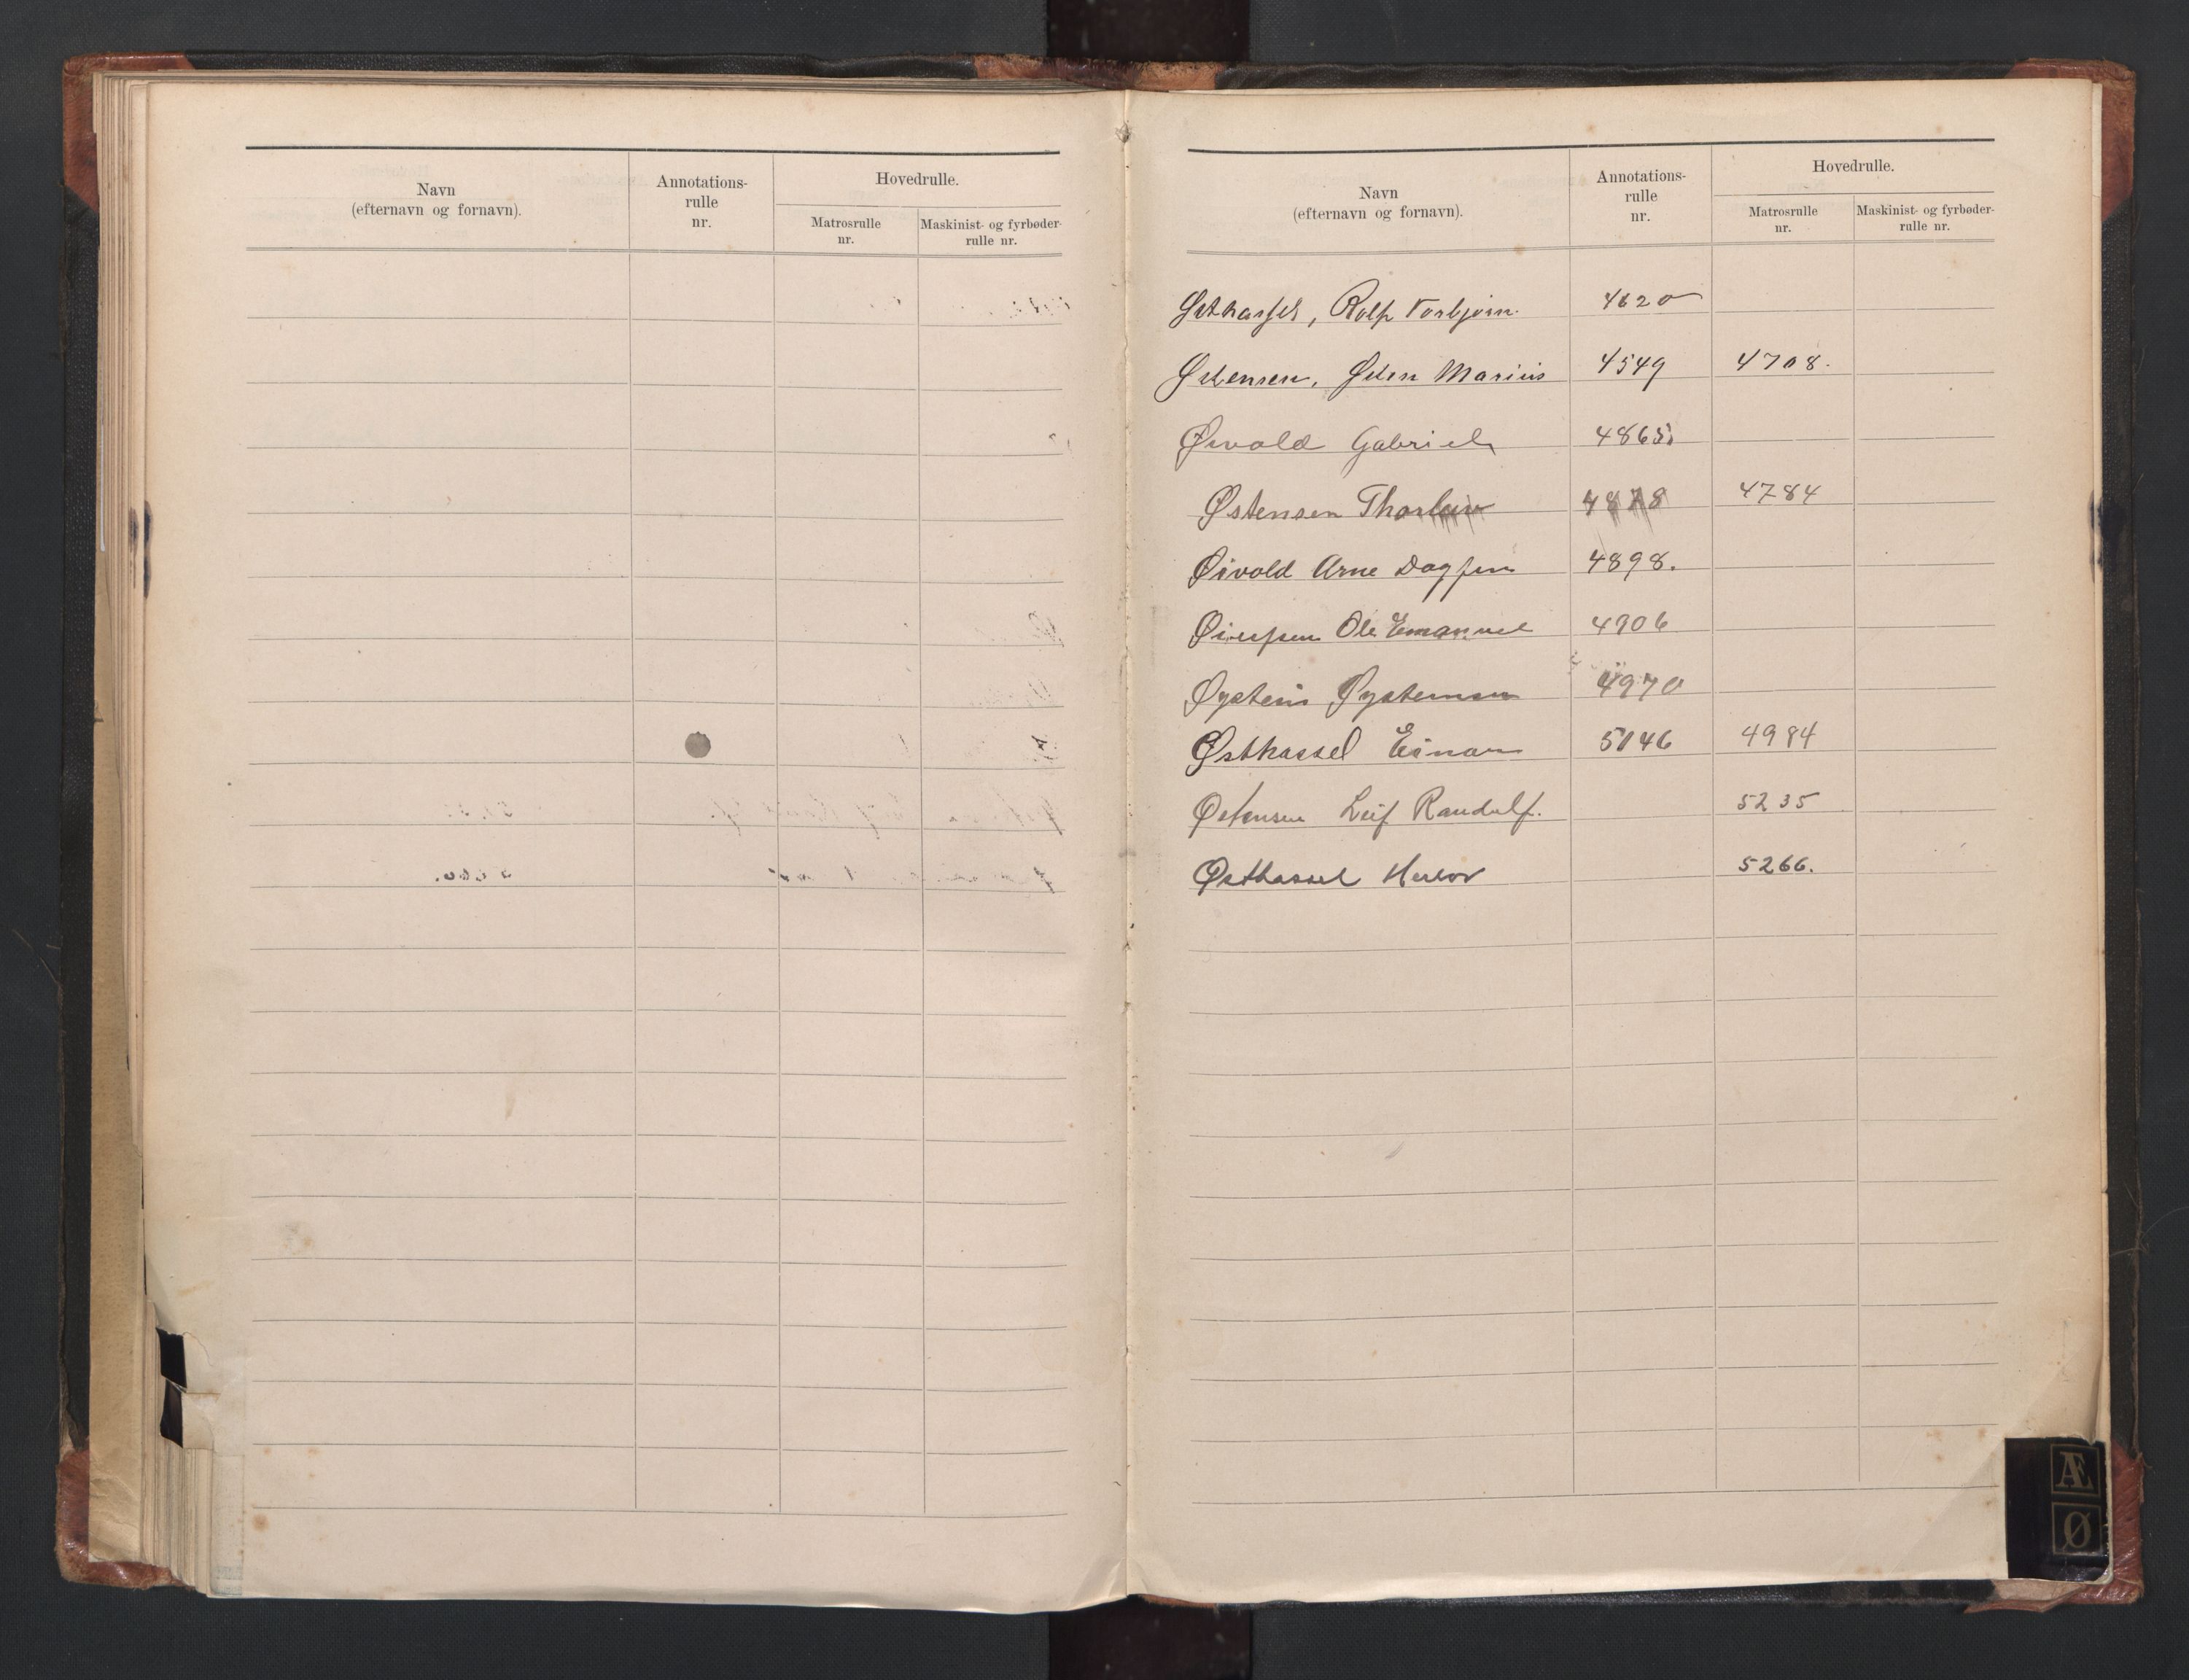 Navn
(efternavn og fornavn).
Annotations-
rulle
nr.
Hovedrulle.
Matrosrulle
nr.
Maskinist- og fyrbøder-
rulle nr.
Navn
(efternavn og fornavn).
Annotations-
rulle
nr.
Hovedrulle.
Matrosrulle
nr.
Maskinist- og fyrbøder-
rulle nr.
Østhassel, Rolf Torbjørn. 4620
Østensen, Østen Marius 4549 4708.
Øivold Gabriel 4865.
Østensen 4878 4784
Øivold Arne Dagfin 4898.
Ole Emanuel 4906
Øystein Øysteinsen 4970
Østhassel Einar 5146 4984
Østensen Leif Randulf. 5235
Østhassel 5266.
Æ
Ø